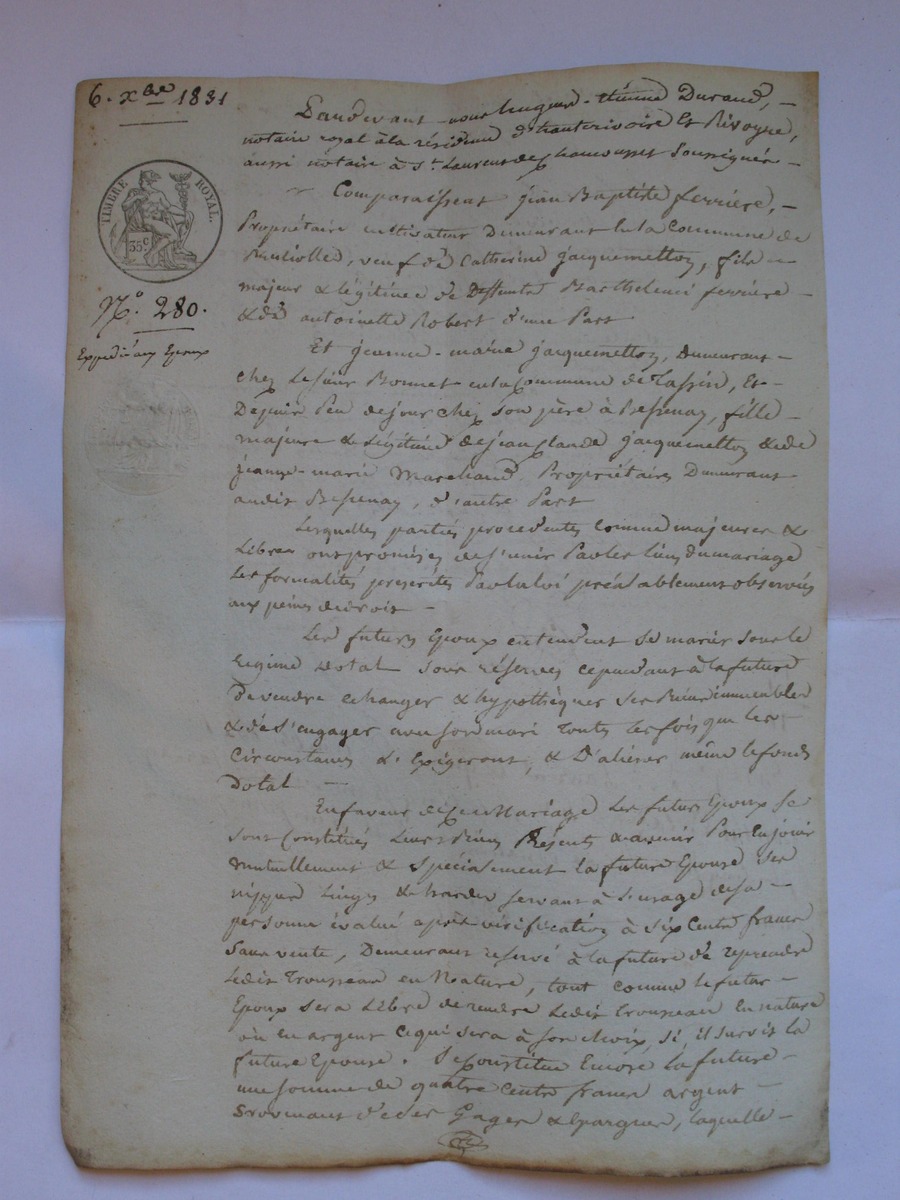 6. xbre 1831
TIMBRE ROYAL.
35c
No. 280.
Expédié aux Epoux
Pardevant nous hugues-étienne Durand,
notaire royal à la résidence d'hauterivoire Et Rivoyre,
aussi notaire à St. Laurent de Chamousset soussignés
Comparaissent jean Baptiste ferriere,
Propriétaire cultivateur Demeurant En la Commune de
veuf de Catherine jacquemetton, fils
majeur & légitime de Deffunts Barthelemi ferriere
& de antoinette Robert d'une Part
Et jeanne-marie jacquemetton, Demeurant
chez Le sieur Bonnet en la Commune de Tassin, Et
Depuis Peu de jour chez son père à Bessenay, fille
majeure & Légitime de jean Claude jacquemetton & de
jeanne-marie Marchand Propriétaires Demeurant
audit Bessenay, d'autre Part
Lesquelles parties procedentes comme majeures &
Libres ont promises de s'unir Par les liens du mariage
les formalités prescrites Par la loi préalablement observées
aux peines de droit
Les futurs Epoux entendent se marier sous le
Régime Dotal sous réserves cependant à la future
De vendre echanger & hypothèquer ses Biens immeubles
& de s'engager avec son mari Toutes les fois que les
Circonstances L'Exigeront, & D'aliéner même le fonds
Dotal
En faveur de Ce Mariage les futurs Epoux se
sont Constitués Leurs Biens Présents & avenir Pour En jouir
Mutuellement & spécialement la future Epouse ses
nippes Linges & hardes servant à l'usage de sa
personne évalué après vérification à six Cents francs
sans vente, Demeurant reservé à la future de reprendre
Ledit Trousseau en Nature, tout comme le futur
Epoux sera Libre de rendre Ledit trousseau En nature
ou En argent Ce qui sera à son choix, si il survit la
future Epouse. Se Constitue Encore la future
une somme de quatre Cents francs argent
Provenant de ses Gages & Epargnes, laquelle